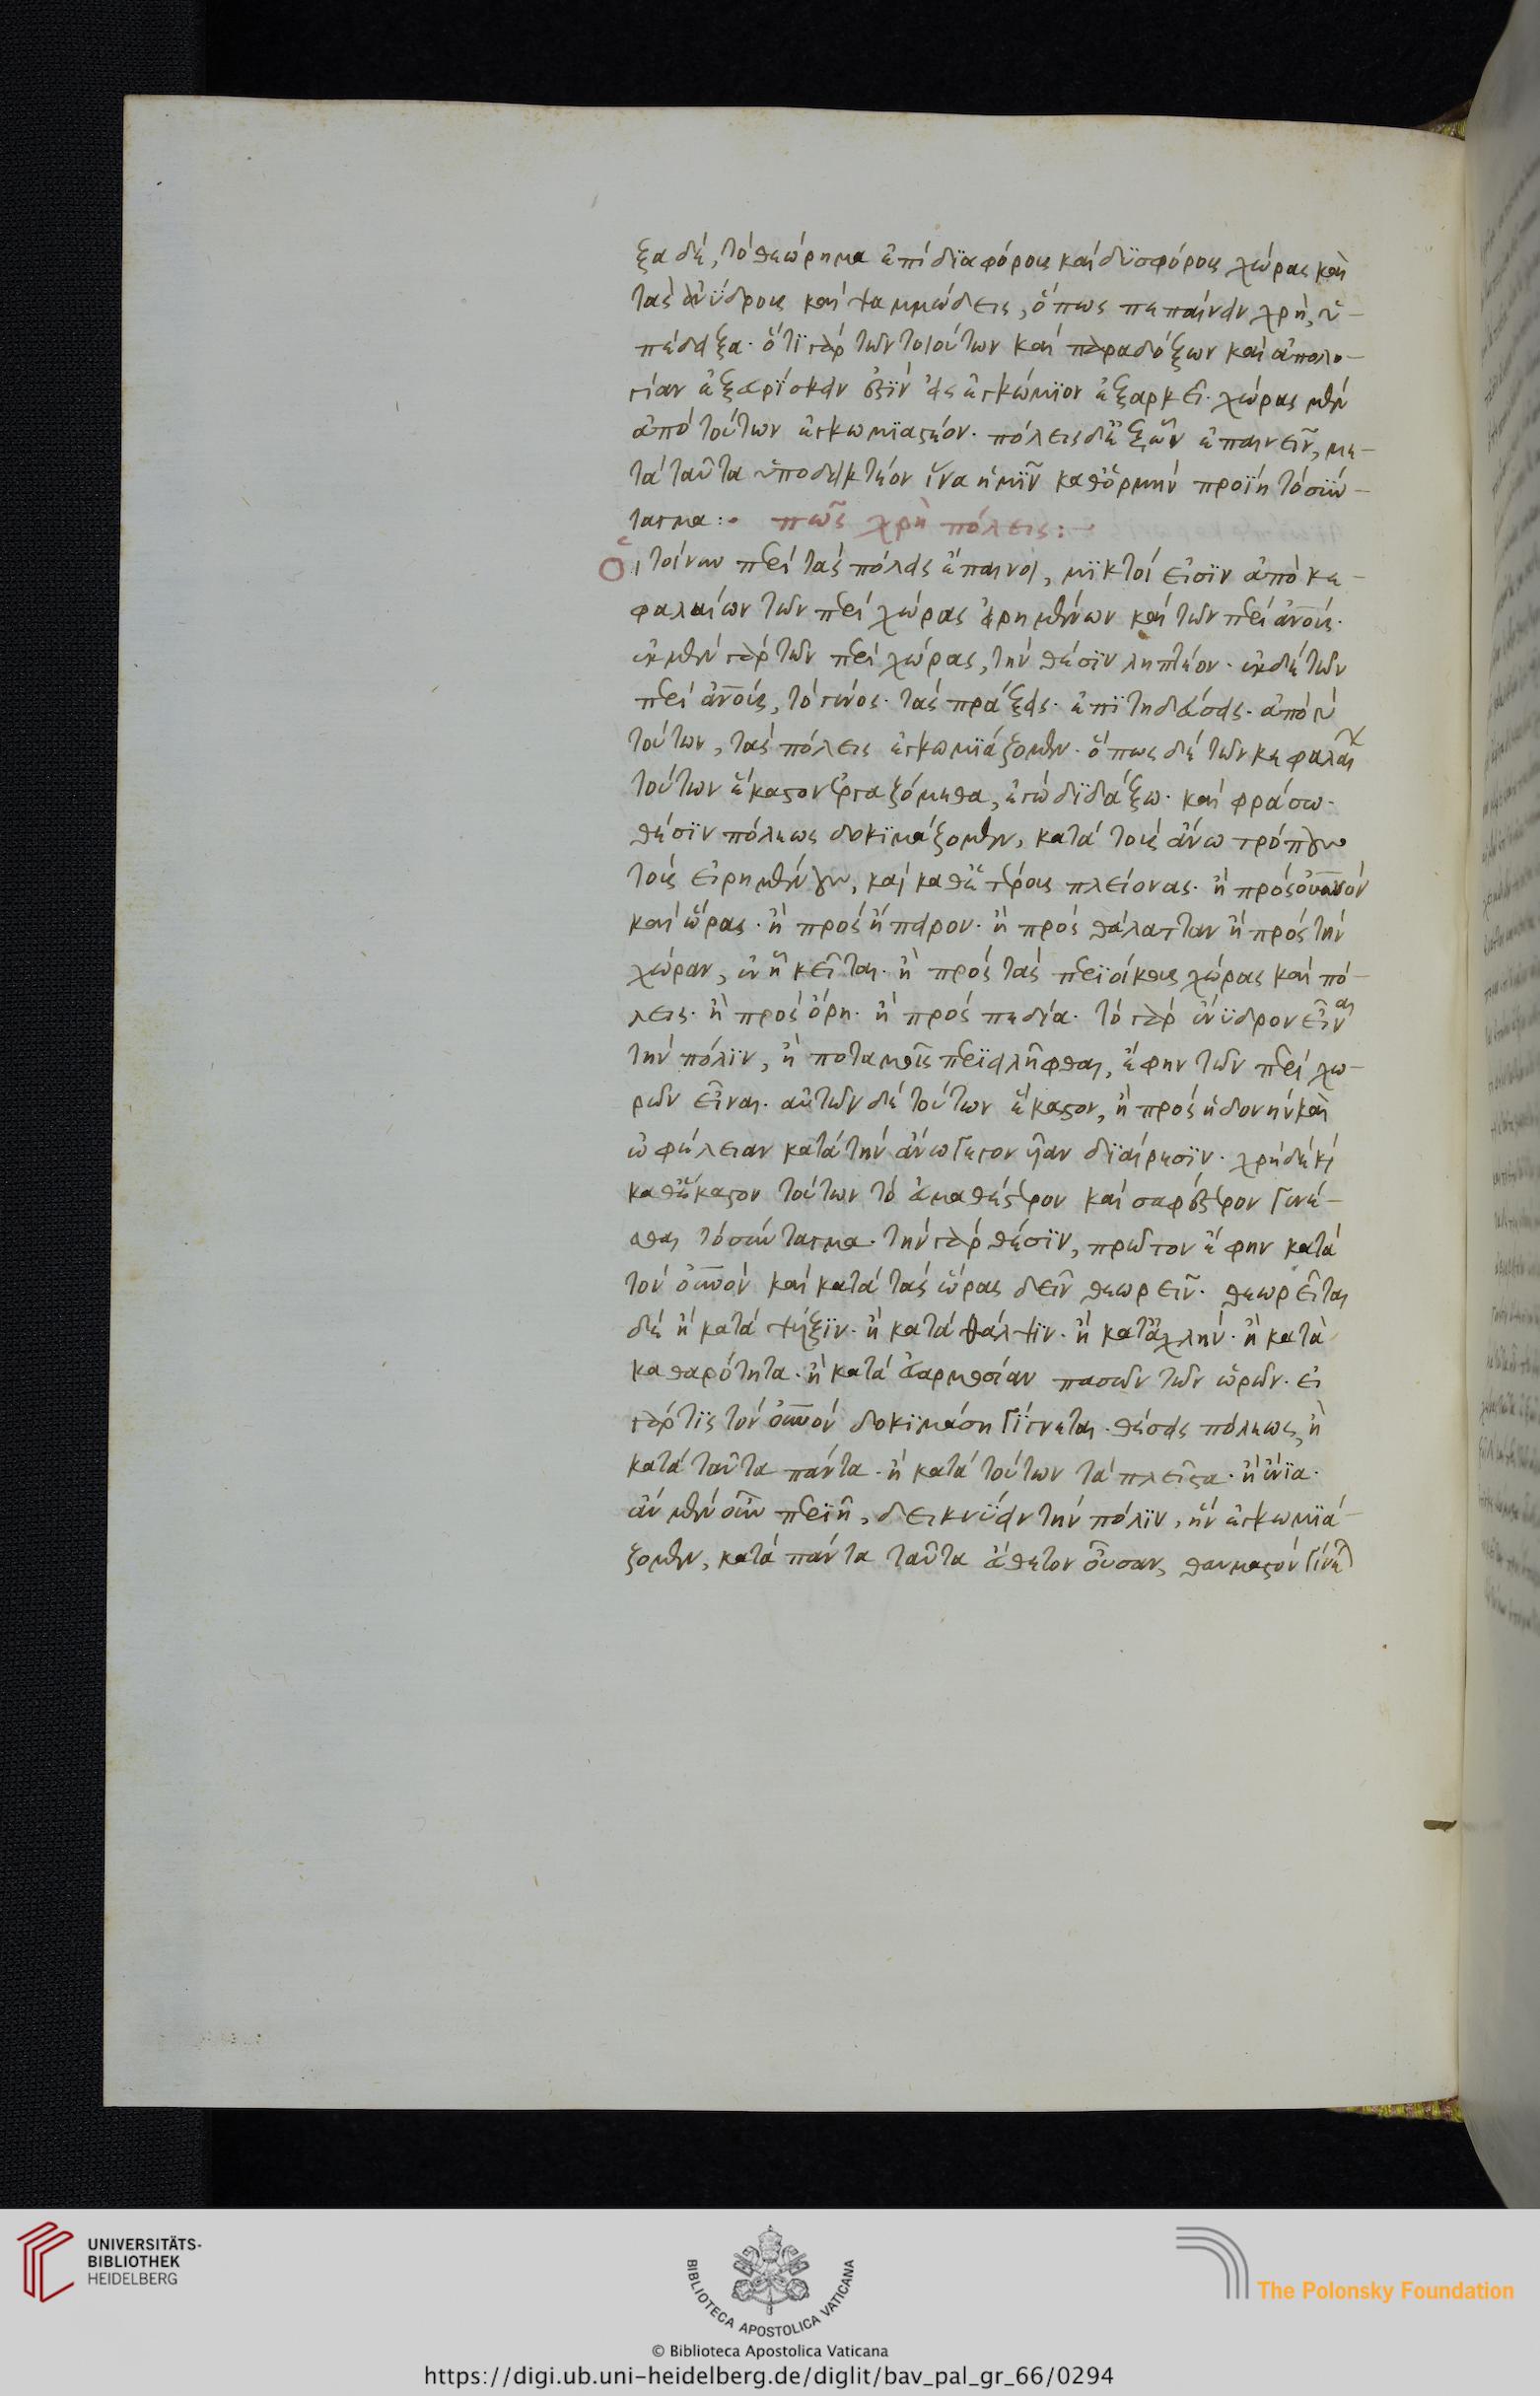 ξα δέ, τὸ θεώρημα ἐπὶ διαφόρους καὶ δυσφόρους χώρας καὶ
τὰς ἀνύδρους καὶ ψαμμώδεις, ὅπως ἐπαινεῖν χρή, ὑ-
πέδειξα. ὅτι γὰρ τῶν τοιούτων καὶ παραδόξων καὶ ἀπολο-
γίαν ἐξευρίσκειν ἐστὶν εἰς ἐγκώμιον ἐξαρκεῖ. χώρας μὲν
ἀπὸ τούτων ἐγκωμιαστέον. πόλεις δὲ ἐξ ὧν ἐπαινεῖν, με-
τὰ ταῦτα ὑποδεικτέον ἵνα ἡμῖν καθ' ὁρμὴν προΐη τὸ σύν-
ταγμα :. πῶς χρὴ πόλεις :-
Οἱ τοίνυν περὶ τὰς πόλεις ἔπαινοι, μικτοί εἰσιν ἀπὸ κε-
φαλαίων τῶν περὶ χώρας εἰρημένων καὶ τῶν περὶ ἀνους.
ἐκ μὲν γὰρ τῶν περὶ χώρας, τὴν θέσιν ληπτέον. ἐκ δὲ τῶν
περὶ ἀνους, τὸ γένος. τὰς πράξεις. ἐπιτηδεύσεις. ἀπὸ γὰρ
τούτων, τὰς πόλεις ἐγκωμιάζομεν. ὅπως δὲ τῶν κεφαλαίων
τούτων ἕκαστον ἐργαζόμεθα, ἐγὼ διδάξω. καὶ φράσω.
θέσιν πόλεως δοκιμάζομεν, κατὰ τοὺς ἄνω τρόπους
τοὺς εἰρημένους, καὶ καθ' ἑτέρους πλείονας. ἢ πρὸς οὐρανὸν
καὶ ὥρας. ἢ πρὸς ἤπειρον. ἢ πρὸς θάλατταν ἢ πρὸς τὴν
χώραν, ἐν ᾗ κεῖται. ἢ πρὸς τὰς περιοίκους χώρας καὶ πό-
λεις. ἢ πρὸς ὄρη. ἢ πρὸς πεδία. τὸ γὰρ ἔνυδρον εἶναι
τὴν πόλιν, ἢ ποταμοῖς περιειλῆφθαι, ἔφην τῶν περὶ χω-
ρῶν εἶναι. αὐτῶν δὲ τούτων ἕκαστον, ἢ πρὸς ἡδονὴν καὶ
ὠφέλειαν κατὰ τὴν ἄνω γεγονυῖαν διαίρεσιν. χρὴ δὲ καὶ
καθ' ἕκαστον τούτων τὸ εὐμαθέστερον καὶ σαφέστερον γενέ-
σθαι τὸ σύνταγμα. τὴν γὰρ θέσιν, πρῶτον ἔφην κατὰ
τὸν οὐνον καὶ κατὰ τὰς ὥρας δεῖν θεωρεῖν. θεωρεῖται
δὲ ἢ κατὰ ψύξιν. ἢ κατὰ θάλψιν. ἢ κατ' ἀχλὺν. ἢ κατὰ
καθαρότητα. ἢ κατὰ εὐαρμοστίαν πασῶν τῶν ὡρῶν. εἰ
γάρ τις τὸν οὐνον δοκιμάση γίγνεται. θέσεις πόλεως, ἢ
κατὰ ταῦτα πάντα. ἢ κατὰ τούτων τὰ πλεῖστα. ἢ ἔνια.
ἂν μὲν οὖν περιῆ, δεικνύειν τὴν πόλιν, ἣν ἐγκωμιά-
ζομεν, κατὰ πάντα ταῦτα εὔθετον οὖσαν, θαυμαστὸν γίνεται
UNIVERSITÄTS-
BIBLIOTHEK
HEIDELBERG
BIBLIOTECA APOSTOLICA VATICANA
The Polonsky Foundation
© Biblioteca Apostolica Vaticana
https://digi.ub.uni-heidelberg.de/diglit/bav_pal_gr_66/0294